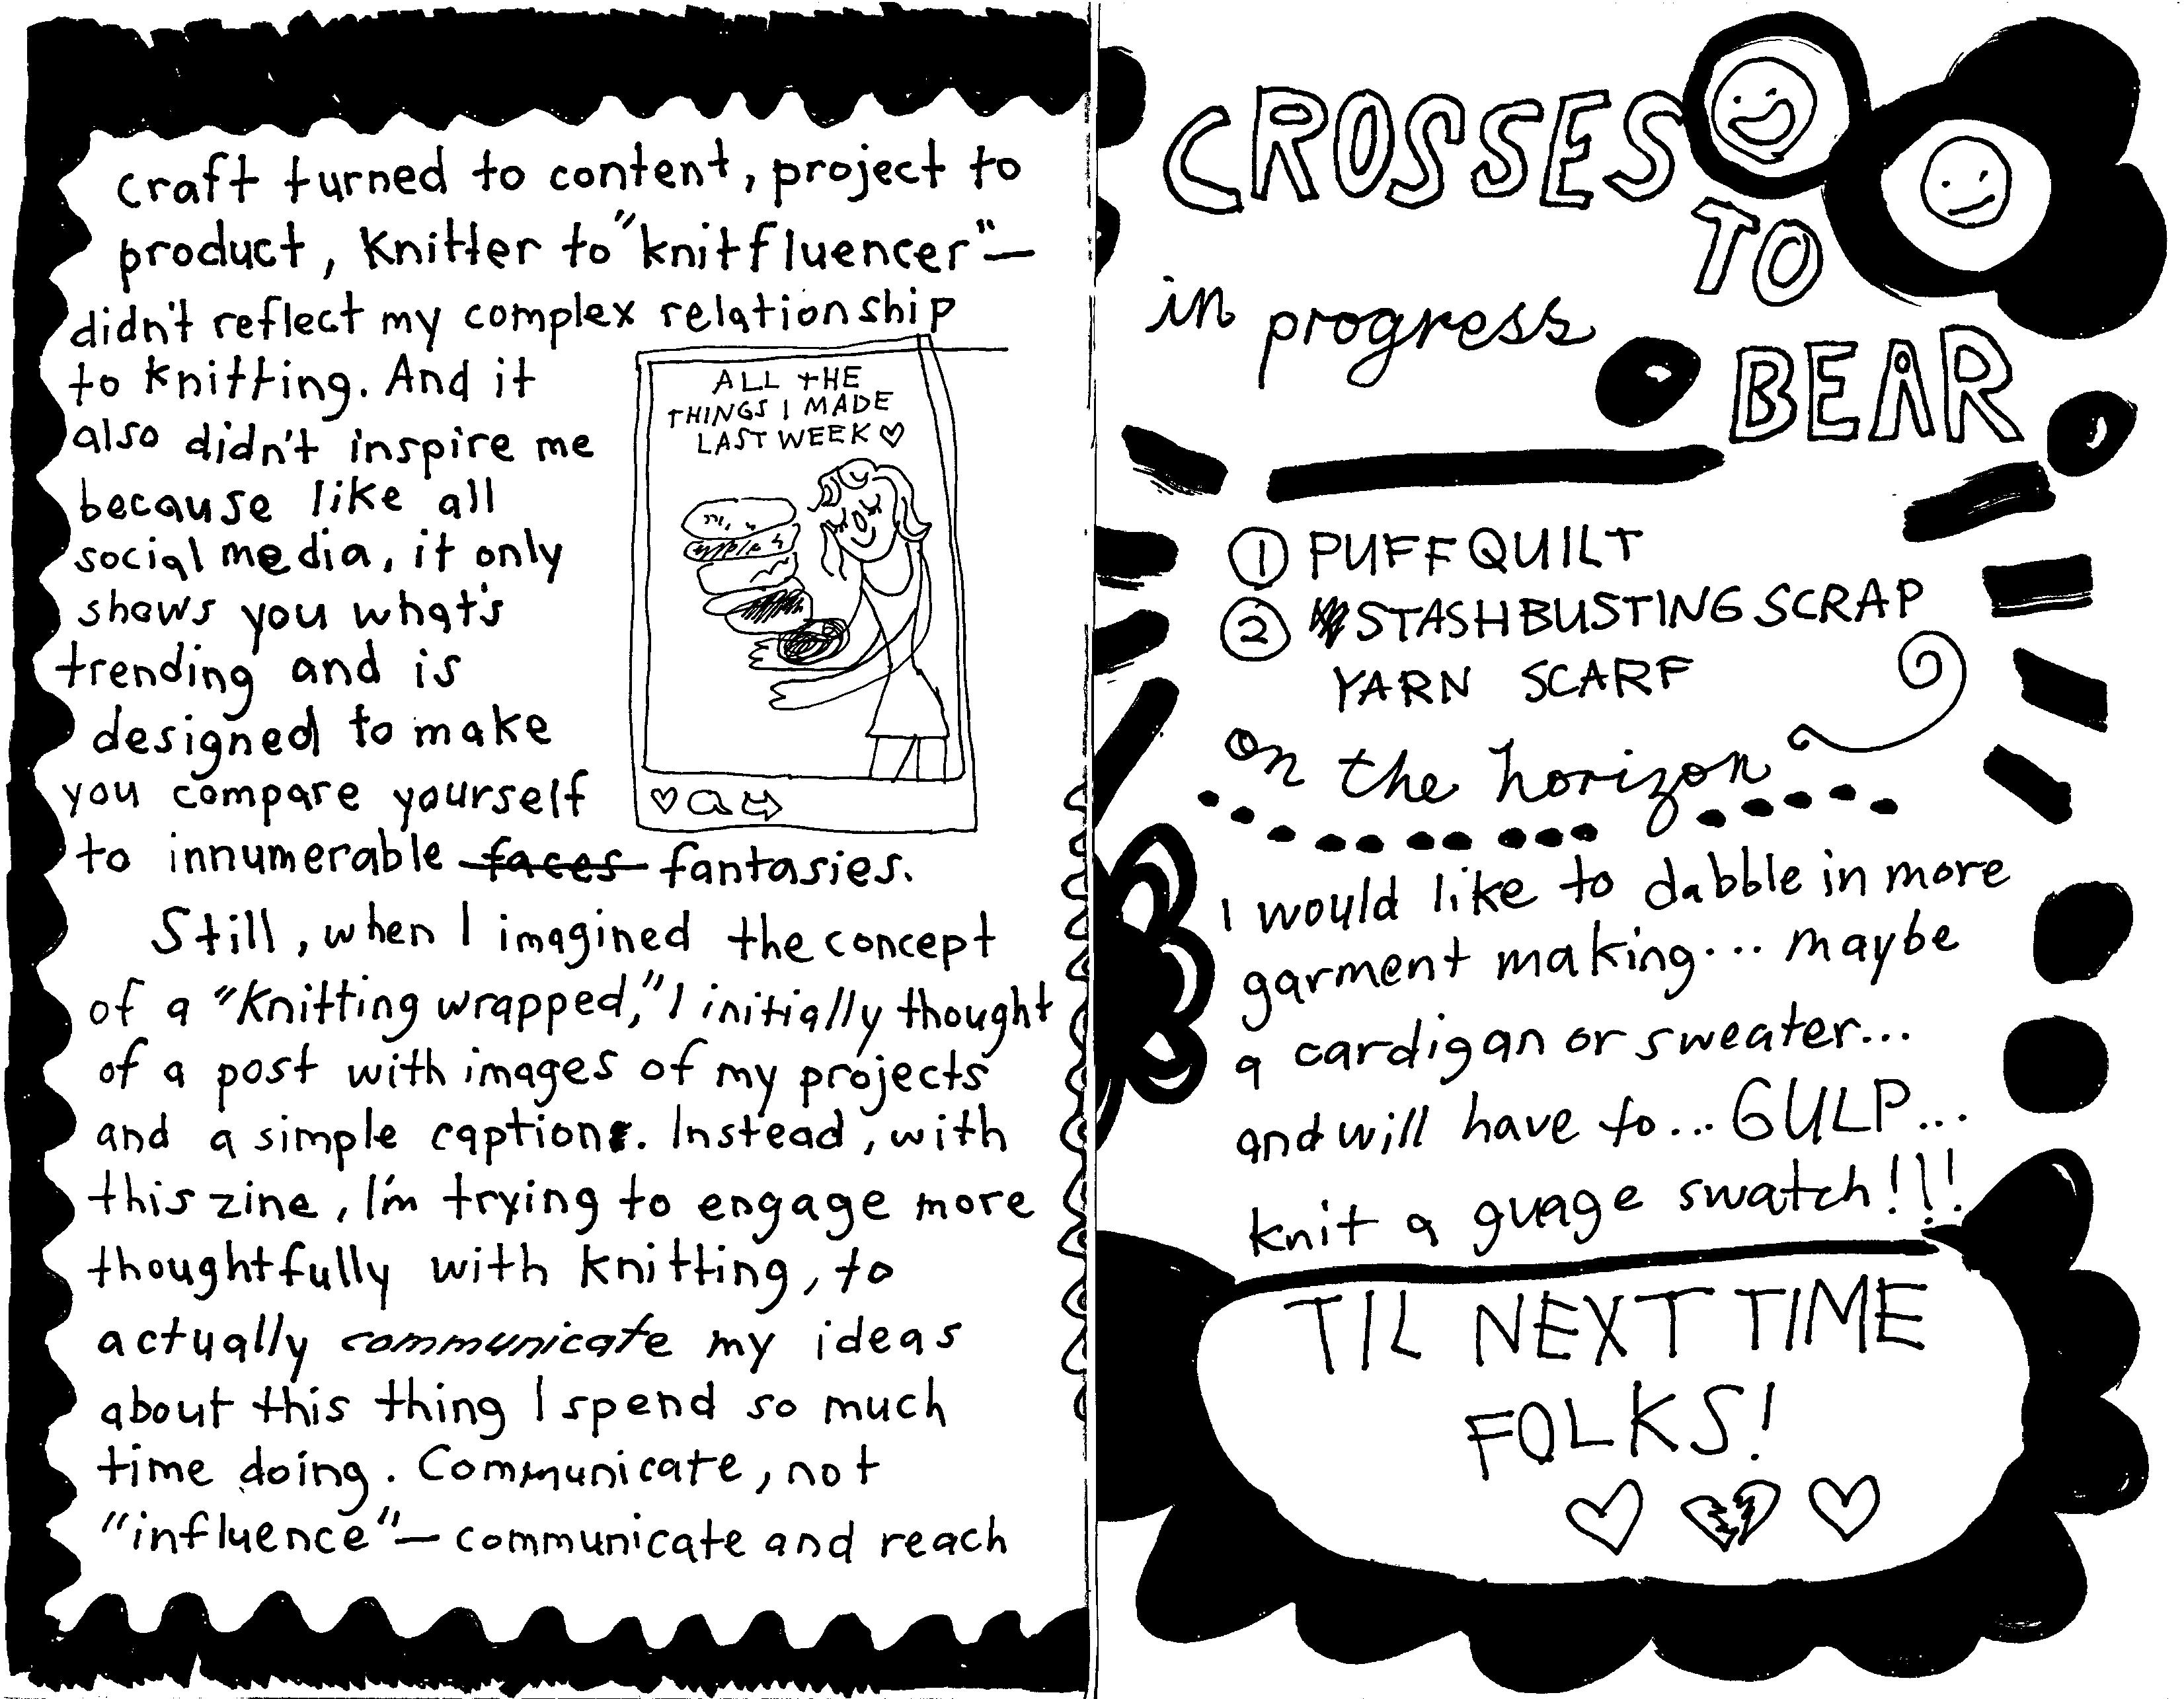 craft turned to content, project to
product, knitter to "knitfluencer"—
didn't reflect my complex relationship
to knitting. And it
also didn't inspire me
because like all
social media, it only
shows you what's
trending and is
designed to make
you compare yourself
to innumerable faces fantasies.
ALL THE
THINGS I MADE
LAST WEEK ♡
Still, when I imagined the concept
of a "Knitting wrapped," I initially thought
of a post with images of my projects
and a simple caption. Instead, with
this zine, I'm trying to engage more
thoughtfully with knitting, to
actually communicate my ideas
about this thing I spend so much
time doing. Communicate, not
"influence"— communicate and reach
CROSSES
TO
BEAR
in progress
① PUFF QUILT
② STASHBUSTING SCRAP
YARN SCARF
on the horizon
I would like to dabble in more
garment making... maybe
a cardigan or sweater...
and will have to... GULP...
knit a guage swatch!!!
TIL NEXT TIME
FOLKS!